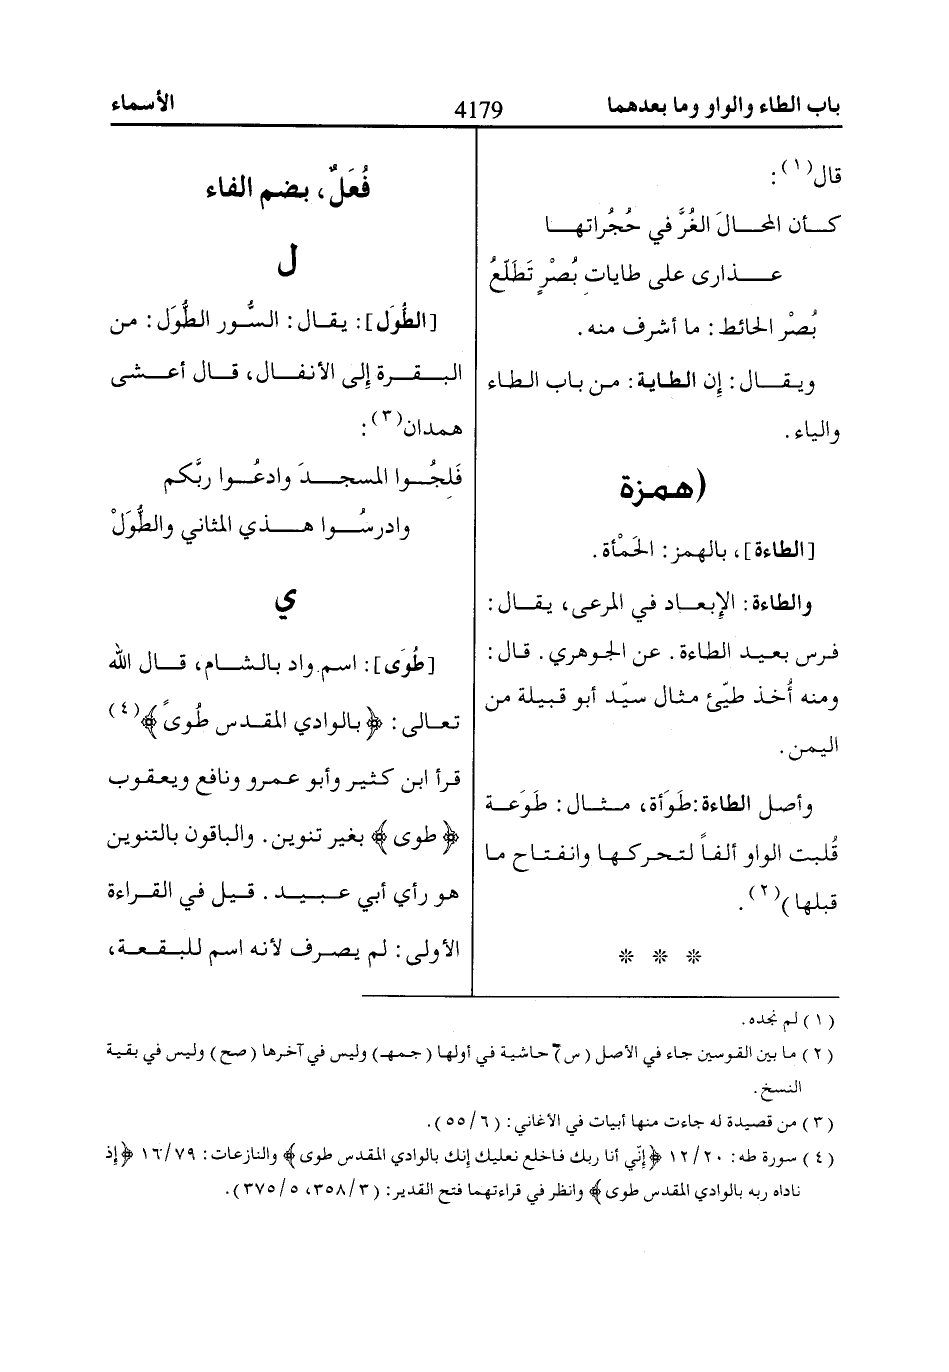 باب الطاء والواو وما بعدهما 4179 الأسماء
قال(١):
كـأن المحـالَ الغُرَّ في حُجُراتهـا
عـذارى على طاياتِ بُصْرٍ تَطَلَّعُ
بُصْر الحائط: ما أشرف منه.
ويقـال: إن الطاية: من باب الطاء
والياء.
(همزة
[الطاءة]، بالهمز: الحَمْأة.
والطاءة: الإبعـاد في المرعى، يقـال:
فـرس بعيـد الطاءة. عن الجوهري. قال:
ومنه أُخذ طيّئ مثال سيّد أبو قبيلة من
اليمن.
وأصل الطاءة: طَوَأة، مثـال: طَوَعـة
قُلبت الواو ألفاً لتحركها وانفتاح ما
قبلها)(٢).
* * *
فُعَلٌ، بضم الفاء
ل
[الطُوَل]: يقـال: السُّور الطُّوَل: من
البـقـرة إلى الأنفـال، قـال أعـشى
همدان(٣):
فَلِجُـوا المسجـدَ وادعُـوا ربَّكم
وادرسُـوا هـذي المثاني والطُّوَلْ
ي
[طُوَى]: اسم واد بالشـام، قـال الله
تعـالى: ﴿بالوادي المقدس طُوىً﴾(٤)
قرأ ابن كثير وأبو عمرو ونافع ويعقوب
﴿طوى﴾ بغير تنوين. والباقون بالتنوين
هو رأي أبي عـبـيـد. قـيل في القـراءة
الأولى: لم يصـرف لأنه اسم للبـقـعـة،
(١) لم نجده.
(٢) ما بين القوسين جاء في الأصل (س) حاشية في أولها (جمهـ) وليس في آخرها (صح) وليس في بقية
النسخ.
(٣) من قصيدة له جاءت منها أبيات في الأغاني: (٦/ ٥٥).
(٤) سورة طه: ٢٠/ ١٢ ﴿إنّي أنا ربك فاخلع نعليك إنك بالوادي المقدس طوى﴾ والنازعات: ٧٩/ ١٦ ﴿إذ
ناداه ربه بالوادي المقدس طوى﴾ وانظر في قراءتهما فتح القدير: (٣/ ٣٥٨، ٥/ ٣٧٥).